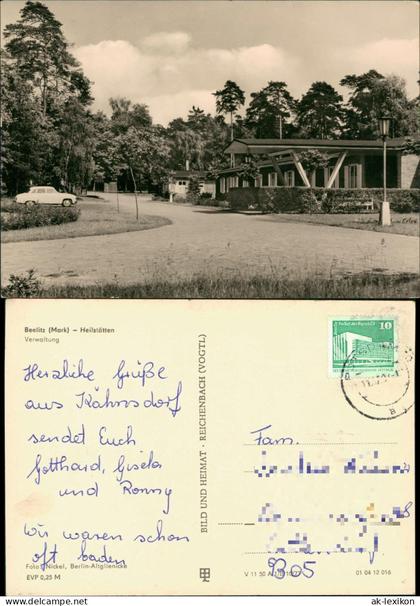 Beelitz (Mark) – Heilstätten
Verwaltung
Herzliche Grüße
aus Kähnsdorf
sendet Euch
Gotthard, Gisela
und Ronny
Wir waren schon
oft baden
Foto: Nickel, Berlin-Altglienicke
EVP 0,25 M
BILD UND HEIMAT · REICHENBACH (VOGTL)
10
Fam.
805
V 11 50
01 04 12 016
© ak-lexikon.com
ak-lexikon.com